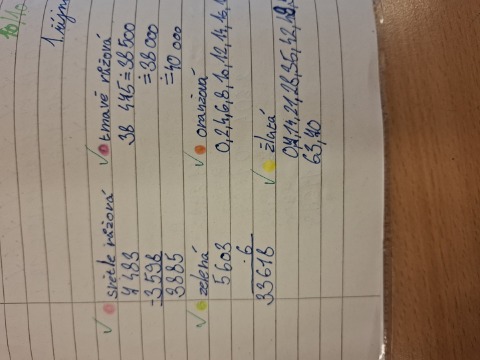 1. října
světle růžová
7 483
-3598
3885
tmavě růžová
38 475 ≐ 38 500
≐ 38 000
≐ 40 000
zelená
5603
. 6
33618
oranžová
0,2,4,6,8,10,12,14,16,
žlutá
0,7,14,21,28,35,42,49,
63,70